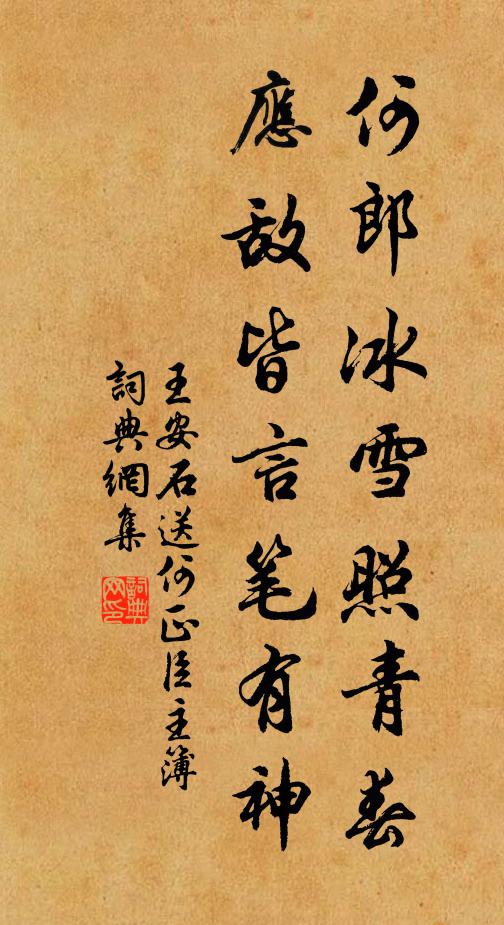 何郎冰雪照青春
應敌皆言笔有神
王安石送何正臣主簿
詞典網集
詞典网印